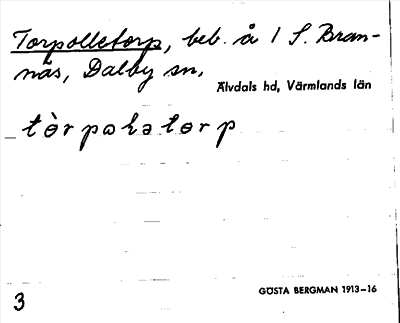 Torpolletorp, beb. å 1 S. Bran-
näs, Dalby sn,
Älvdals hd, Värmlands län
tòrpalətorp
GÖSTA BERGMAN 1913–16
3